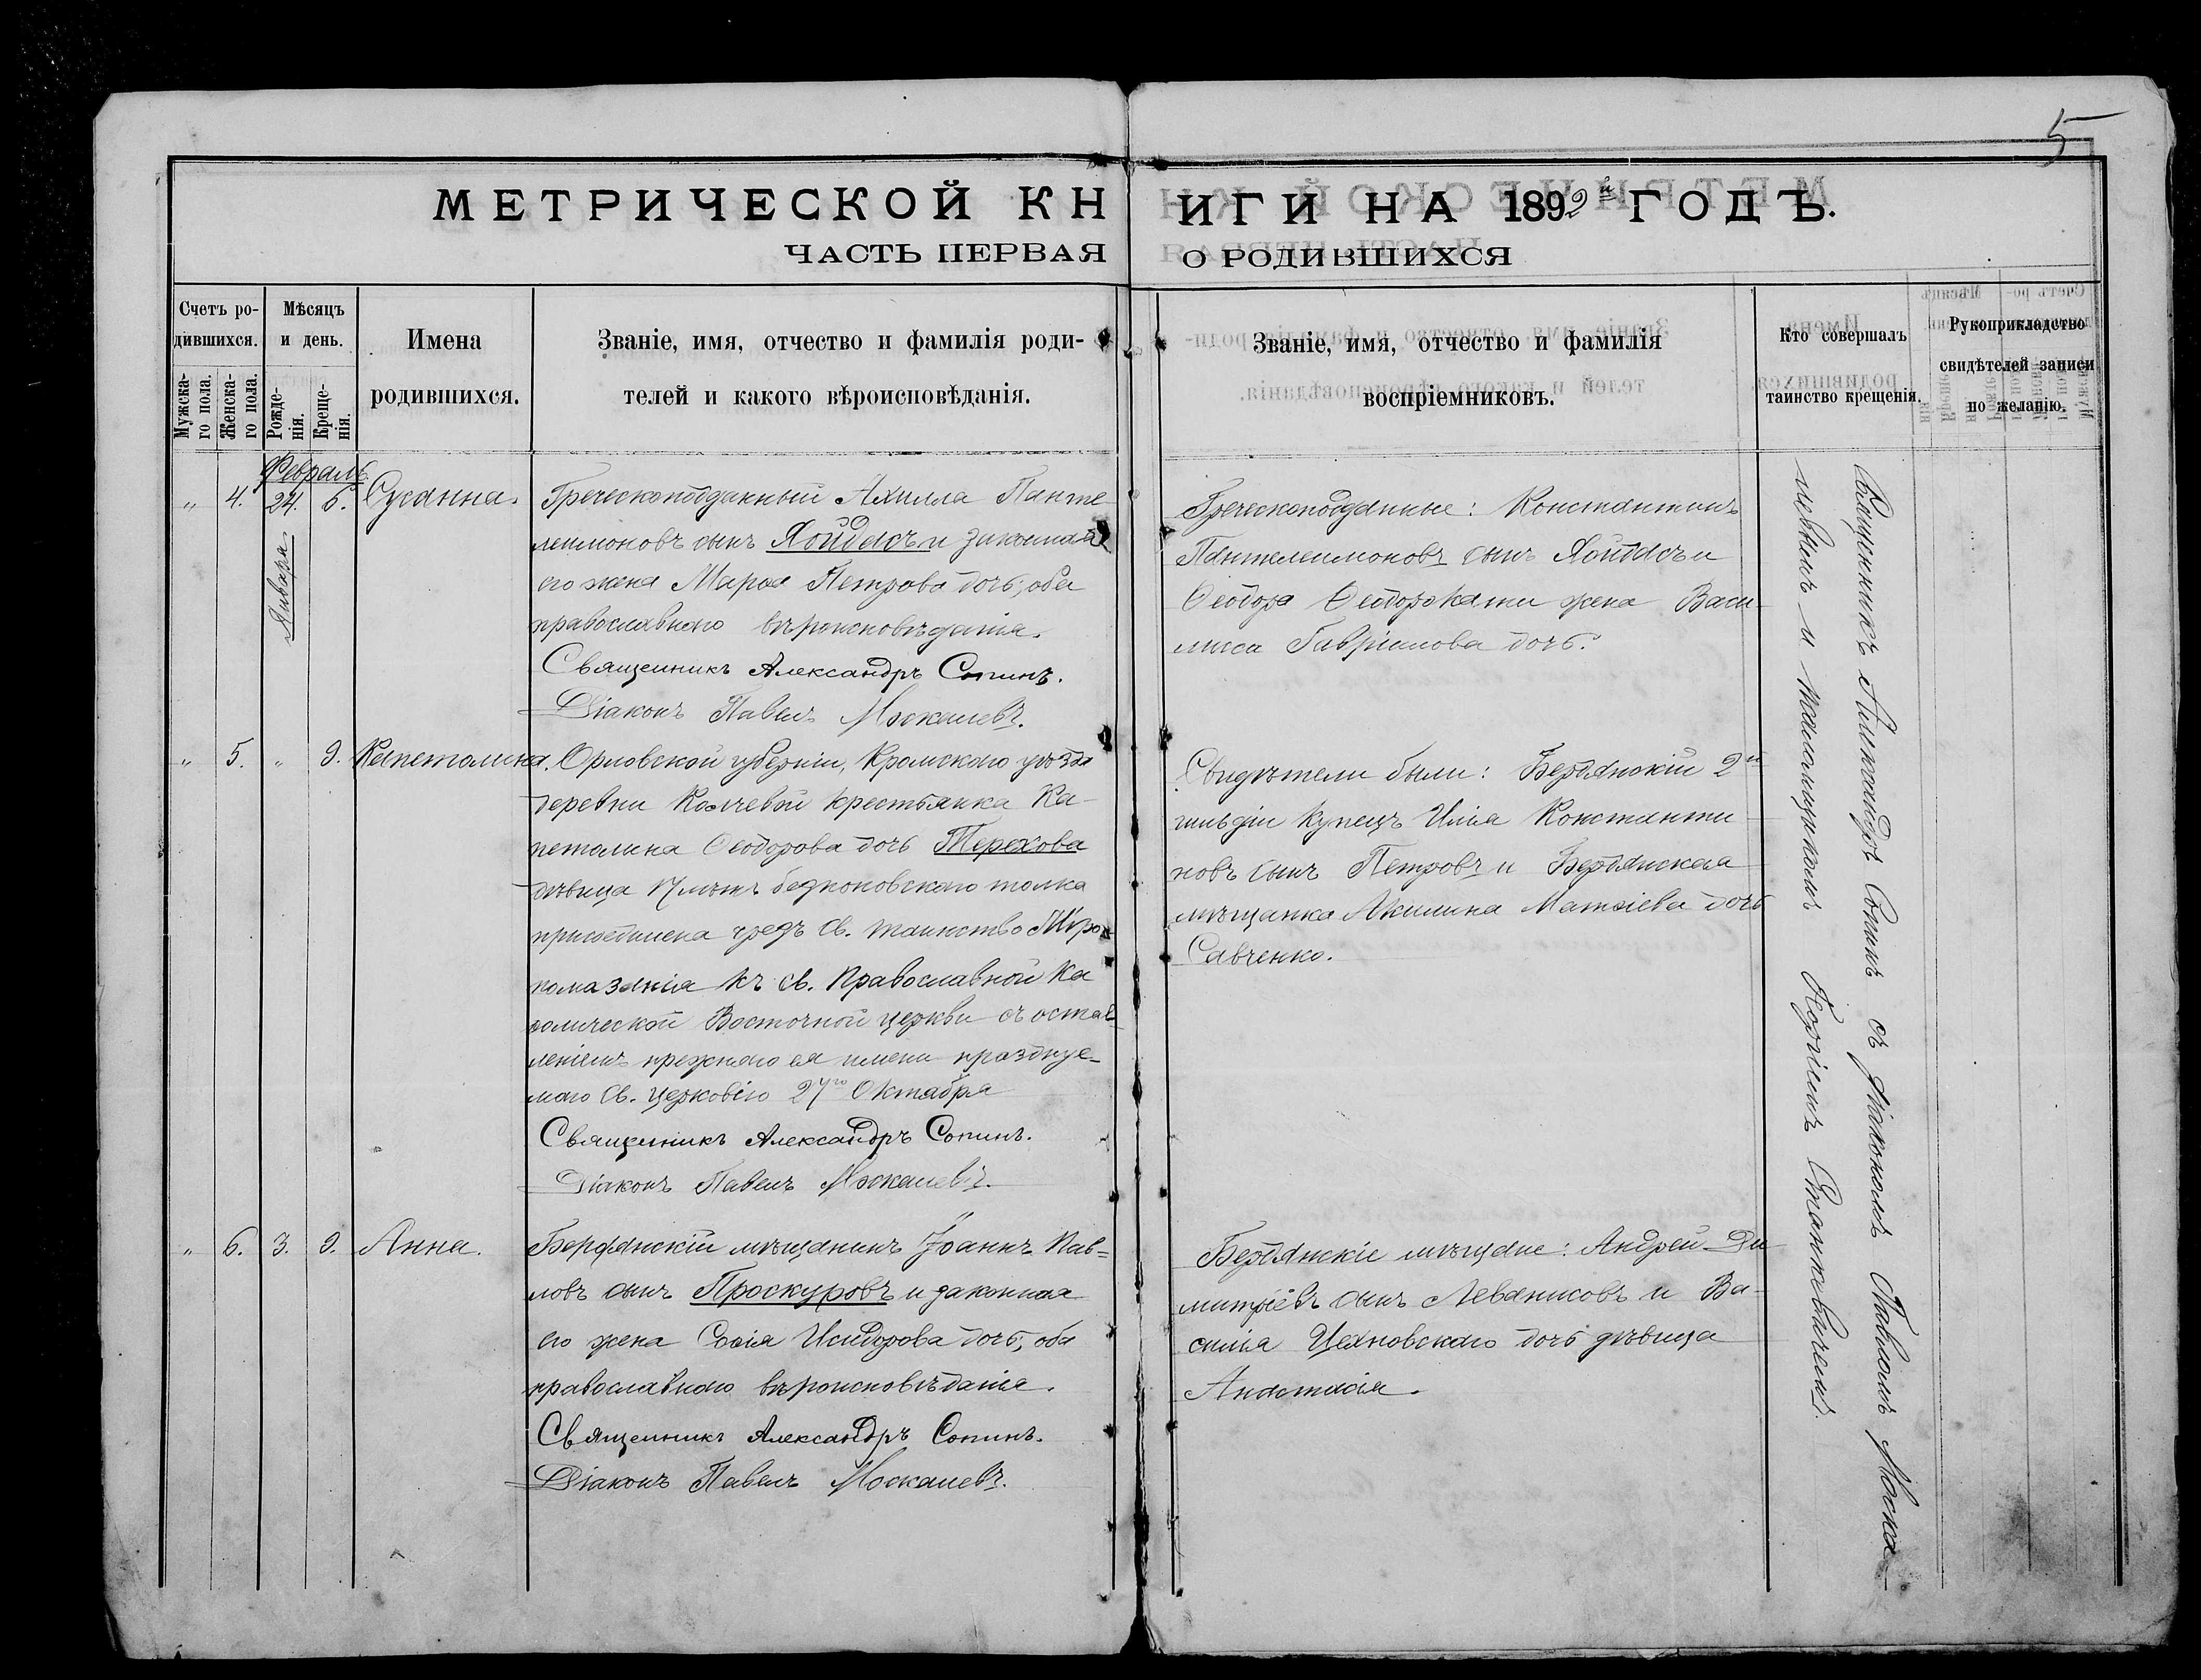 5
МЕТРИЧЕСКОЙ КНИГИ НА 1892й ГОДЪ.
ЧАСТЬ ПЕРВАЯ О РОДИВШИХСЯ
Счетъ родившихся.
Мужскаго пола.
Женскаго пола.
Мѣсяцъ и день.
Рожденія.
Крещенія.
Имена
родившихся.
Званіе, имя, отчество и фамилія роди-
телей и какого вѣроисповѣданія.
Званіе, имя, отчество и фамилія
воспріемниковъ.
Кто совершалъ
таинство крещенія.
Рукоприкладство
свидѣтелей записи
по желанію.
Февраль
" 4. 24. 6. Сусанна.
Января
Греческоподданный Ахилла Панте
леимоновъ сынъ Хойдасъ и законная
его жена Марія Петрова дочь, оба
православнаго вѣроисповѣданія.
Священникъ Александръ Сопинъ.
Діаконъ Павелъ Москалевъ.
Греческоподданные: Константинъ
Пантелеимоновъ сынъ Хойдасъ и
Ѳеодора Ѳеодорокати жена Васи-
лиса Гавріилова дочь.
" 5. " 9. Капетолина.
Орловской губерніи, Кромскаго уѣзда
деревни крестьянка Ка-
петолина Ѳеодорова дочь Терехова
дѣвица 17 лѣтъ толка
присоединена чрезъ св. таинство Мѵро
помазанія къ св. Православной Ка
ѳолической Восточной церкви съ остав
леніемъ прежняго ея имени празднуе-
маго св. церковію 27го Октября
Священникъ Александръ Сопинъ.
Діаконъ Павелъ Москалевъ.
Свидѣтели были: Бердянскій 2й
гильдіи купецъ Илія Константи-
новъ сынъ Петровъ и Бердянская
мѣщанка Акилина Матѳіева дочь
Савченко.
" 6. 3. 9. Анна.
Бердянскій мѣщанинъ Іоаннъ Пав=
ловъ сынъ Проскуровъ и законная
его жена Софія Исидорова дочь, оба
православнаго вѣроисповѣданія.
Священникъ Александръ Сопинъ.
Діаконъ Павелъ Москалевъ.
Бердянскіе мѣщане: Андрей Ди
митріевъ сынъ Леванисовъ и Ва-
силія Цехновскаго дочь дѣвица
Анастасія.
Священникъ Александръ Сопинъ съ діакономъ Павломъ Моска-
левымъ и псаломщикомъ Георгіемъ Станкевичемъ.